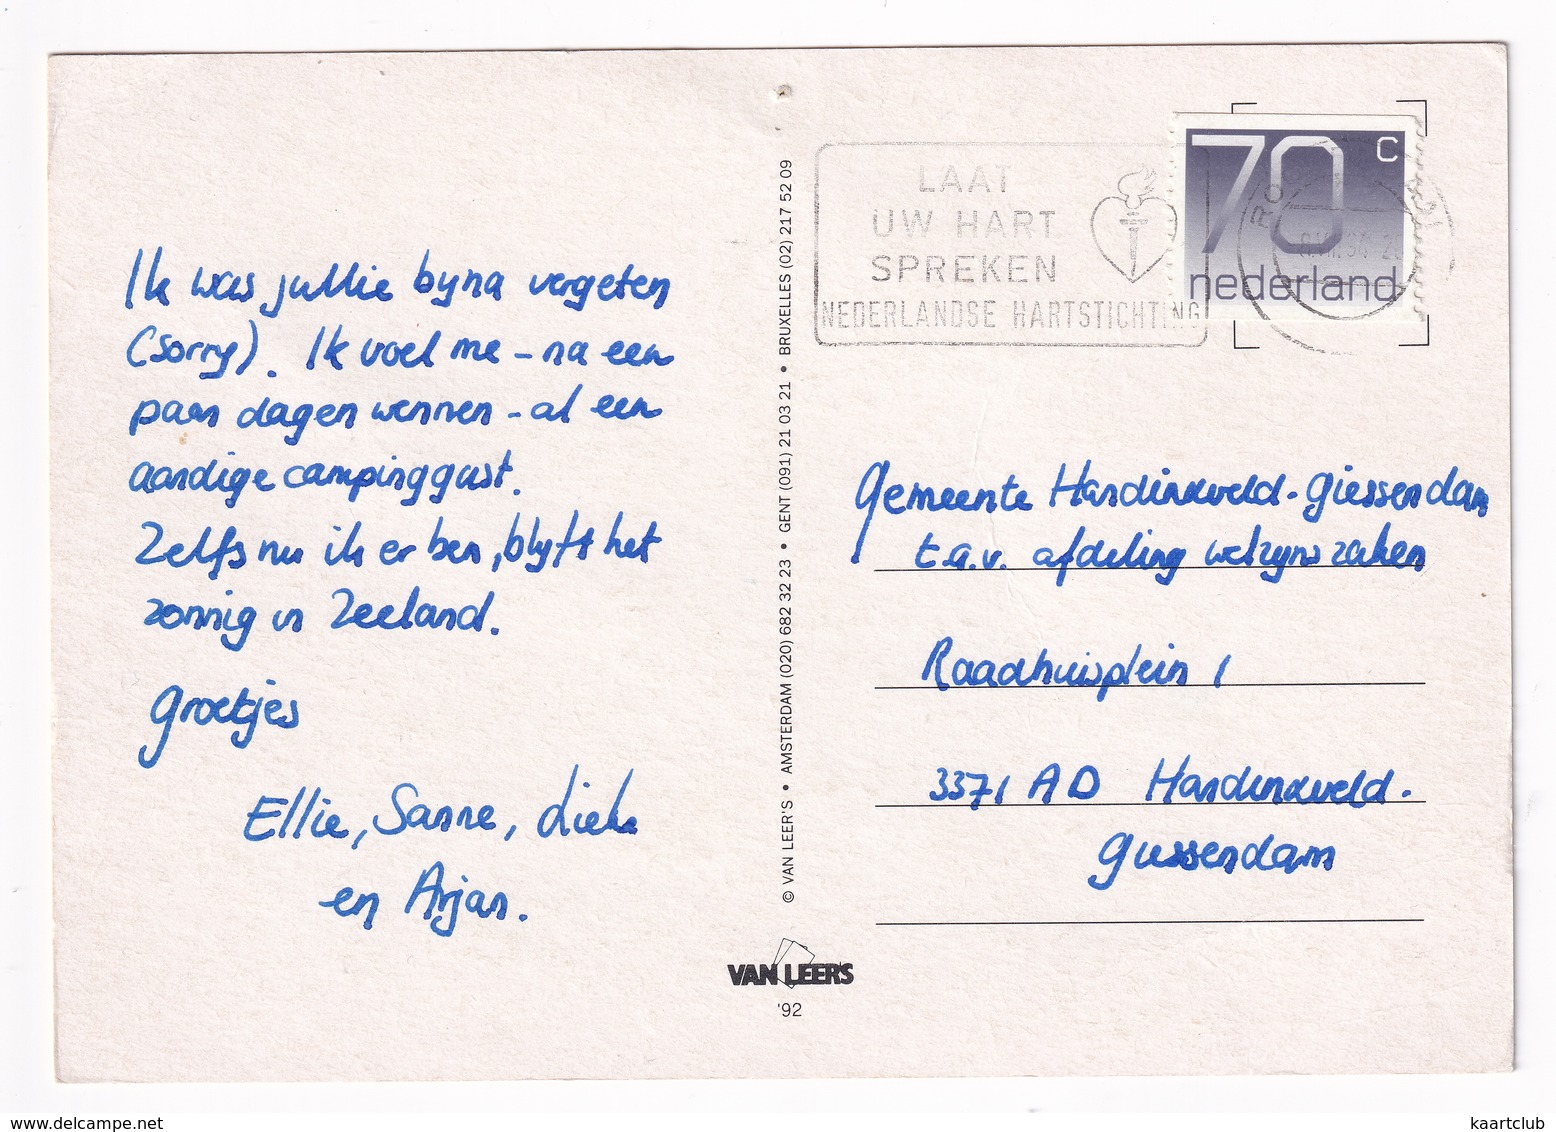 Ik was jullie byna vergeten
(sorry). Ik voel me - na een
paar dagen wennen - al een
aardige campinggast.
Zelfs nu ik er ben, blyft het
zonnig in Zeeland.
Groetjes
Ellie, Sanne, Lieke
en Arjan.
© VAN LEER'S • AMSTERDAM (020) 682 32 23 • GENT (091) 21 03 21 • BRUXELLES (02) 217 52 09
VAN LEER'S
'92
LAAT
UW HART
SPREKEN
NEDERLANDSE HARTSTICHTING
70 c
nederland
Gemeente Hardinxveld-Giessendam
t.a.v. afdeling welzynszaken
Raadhuisplein 1
3371 AD Hardinxveld-
Giessendam
www.delcampe.net
kaartclub